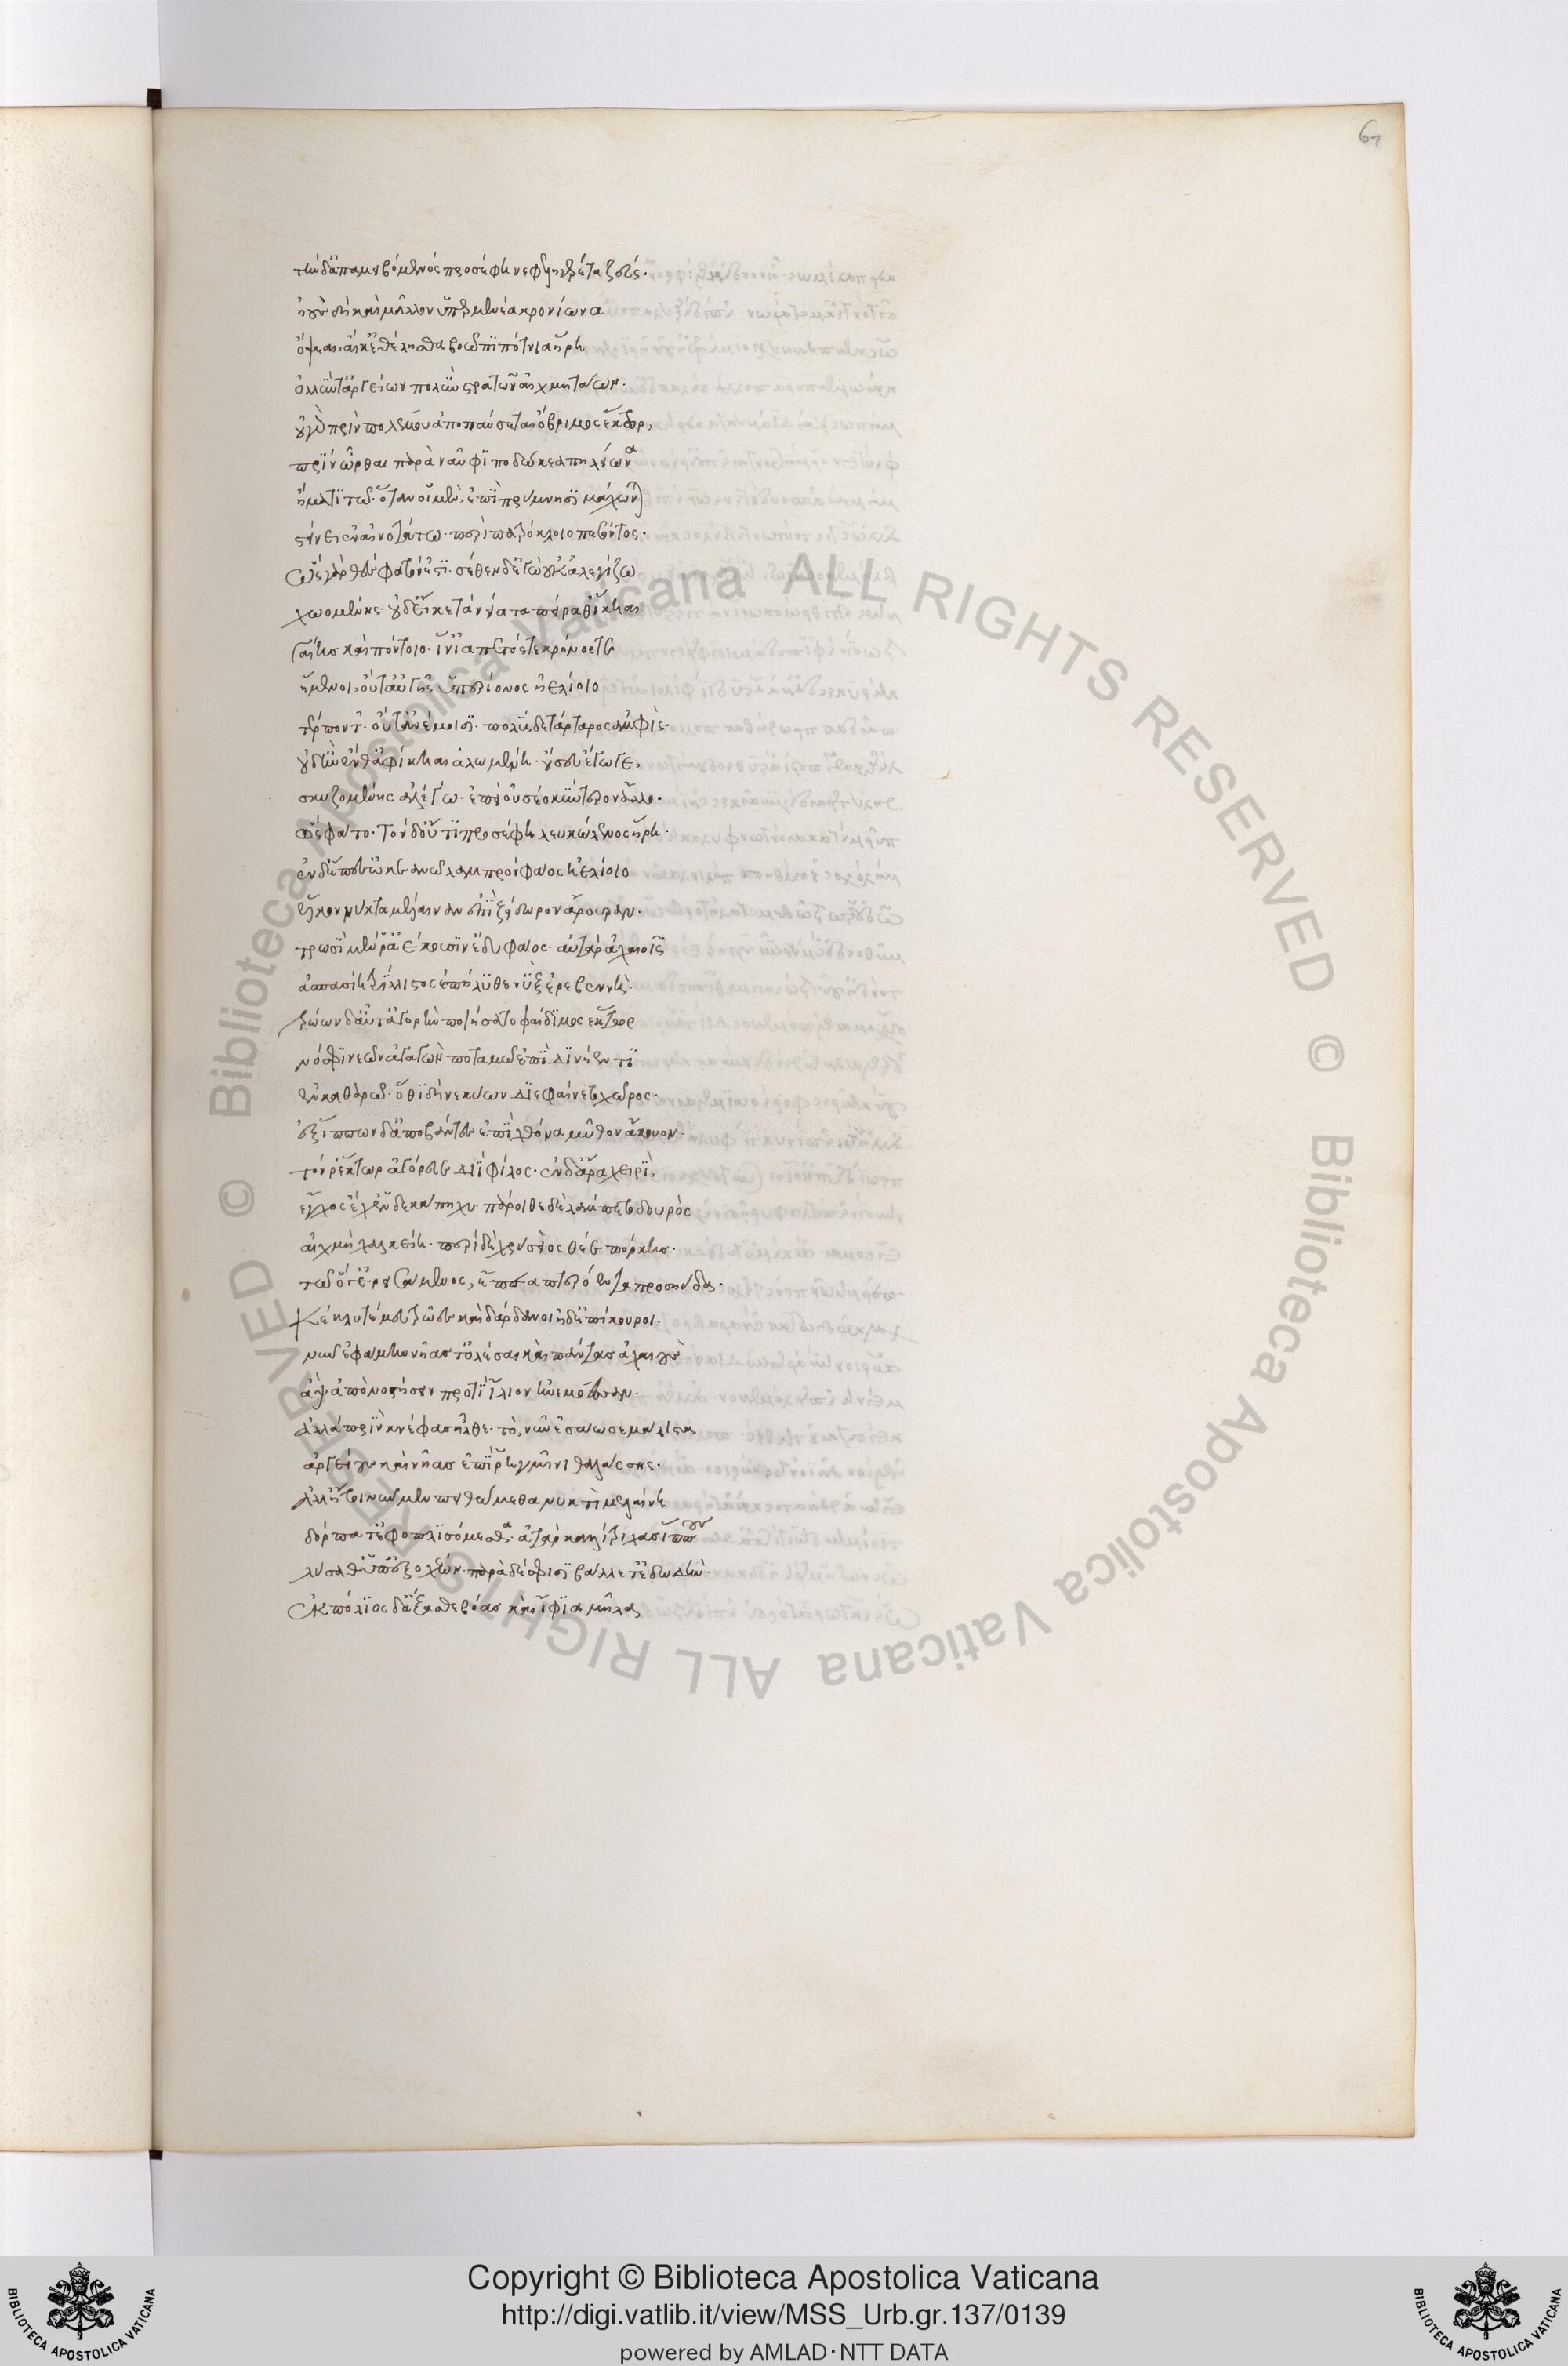 τὴν δ' ἀπαμειβόμενος προσέφη νεφεληγερέτα ζεύς·
ἠοῦς δὴ καὶ μᾶλλον ὑπερμενέα κρονίωνα
ὄψεαι, αἴ κ' ἐθέλησθα βοῶπι πότνια ἥρη
ὀλλύντ' ἀργείων πολὺν στρατὸν αἰχμητάων·
οὐ γὰρ πρὶν πολέμου ἀποπαύσεται ὄβριμος ἕκτωρ,
πρὶν ὦρθαι παρὰ ναῦφι ποδώκεα πηλείωνα
ἤματι τῷ· ὅταν οἱ μὲν, ἐπὶ πρύμνησι μάχωνται
στείνει ἐν αἰνοτάτω· περὶ πατρόκλοιο πεσόντος·
ὣς γὰρ θέσφατόν ἐστι· σέθεν δ' ἐγὼ οὐκ ἀλεγίζω
χωομένης· οὐδ' εἴ κε τὰ νείατα πείραθ' ἵκηαι
γαίης καὶ πόντοιο· ἵν' ἰαπετός τε κρόνος τε
ἥμενοι, οὔτ' αὐγῆς ὑπερίονος ἠελίοιο
τέρποντ'· οὔτ' ἀνέμοισι· πολὺς δέ τε τάρταρος ἀμφίς·
οὐδ' ἢν ἔνθ' ἀφίκηαι ἀλωμένη· οὔ σευ ἔγωγε,
σκυζομένης ἀλέγω· ἐπεὶ οὐ σέο κύντερον ἄλλο·
ὣς φάτο· τὸν δ' οὔτι προσέφη λευκώλενος ἥρη·
ἐν δ' ἔπεσ' ὠκεανῷ λαμπρὸν φάος ἠελίοιο
ἕλκον νύκτα μέλαιναν ἐπὶ ζείδωρον ἄρουραν·
τρωσὶ μέν ῥ' ἀέκουσιν ἔδυ φάος· αὐτὰρ ἀχαιοῖς
ἀσπασίη τρίλλιστος ἐπήλυθε νὺξ ἐρεβεννή·
τρώων δ' αὖτ' ἀγορὴν ποιήσατο φαίδιμος ἕκτωρ
νόσφι νεῶν ἀγαγὼν ποταμῷ ἐπὶ δινήεντι
ἐν καθαρῷ· ὅθι δὴ νεκύων διεφαίνετο χῶρος·
ἐξ ἵππων δ' ἀποβάντες ἐπὶ χθόνα μῦθον ἄκουον·
τόν ῥ' ἕκτωρ ἀγόρευε διῒ φίλος· ἐν δ' ἄρα χειρὶ,
ἔγχος ἔχ' ἑνδεκάπηχυ· πάροιθε δὲ λάμπετο δουρὸς
αἰχμὴ χαλκείη· περὶ δὲ χρύσεος θέε πόρκης·
τῷ ὅγ' ἐρεισάμενος, ἔπεα πτερόεντα προσηύδα·
κέκλυτέ μευ τρῶες καὶ δάρδανοι ἠδ' ἐπίκουροι·
νῦν ἐφάμην νῆας τ' ὀλέσαι καὶ πάντας ἀχαιοὺς
ἂψ ἀπονοστήσειν προτὶ ἴλιον ἠνεμόεσσαν·
ἀλλὰ πρὶν κνέφας ἦλθε· τὸ, νῦν ἐσάωσε μάλιστα
ἀργείους καὶ νῆας ἐπὶ ῥηγμῖνι θαλάσσης·
ἀλλ' ἤτοι νῦν μὲν πειθώμεθα νυκτὶ μελαίνη
δόρπα τ' ἐφοπλισόμεσθα· ἀτὰρ καλλίτριχας ἵππους
λύσαθ' ὑπ' ἐξ ὀχέων· παρὰ δέ σφισι βάλλετ' ἐδωδήν·
ἐκ πόλιος δ' ἄξασθε βόας καὶ ἴφια μῆλα
61
Copyright © Biblioteca Apostolica Vaticana
http://digi.vatlib.it/view/MSS_Urb.gr.137/0139
powered by AMLAD·NTT DATA
© Biblioteca Apostolica Vaticana ALL RIGHTS RESERVED © Biblioteca Apostolica Vaticana ALL RIGHTS RESERVED
BIBLIOTECA APOSTOLICA VATICANA
BIBLIOTECA APOSTOLICA VATICANA